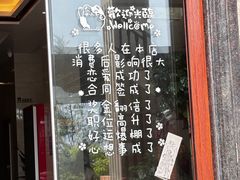 歡迎光臨
Wellcome
很多人在本店
消費后影响很大
恋爱成功了
合同签成了
奖金翻倍了
职位高升了
好运爆棚了
心想事成了